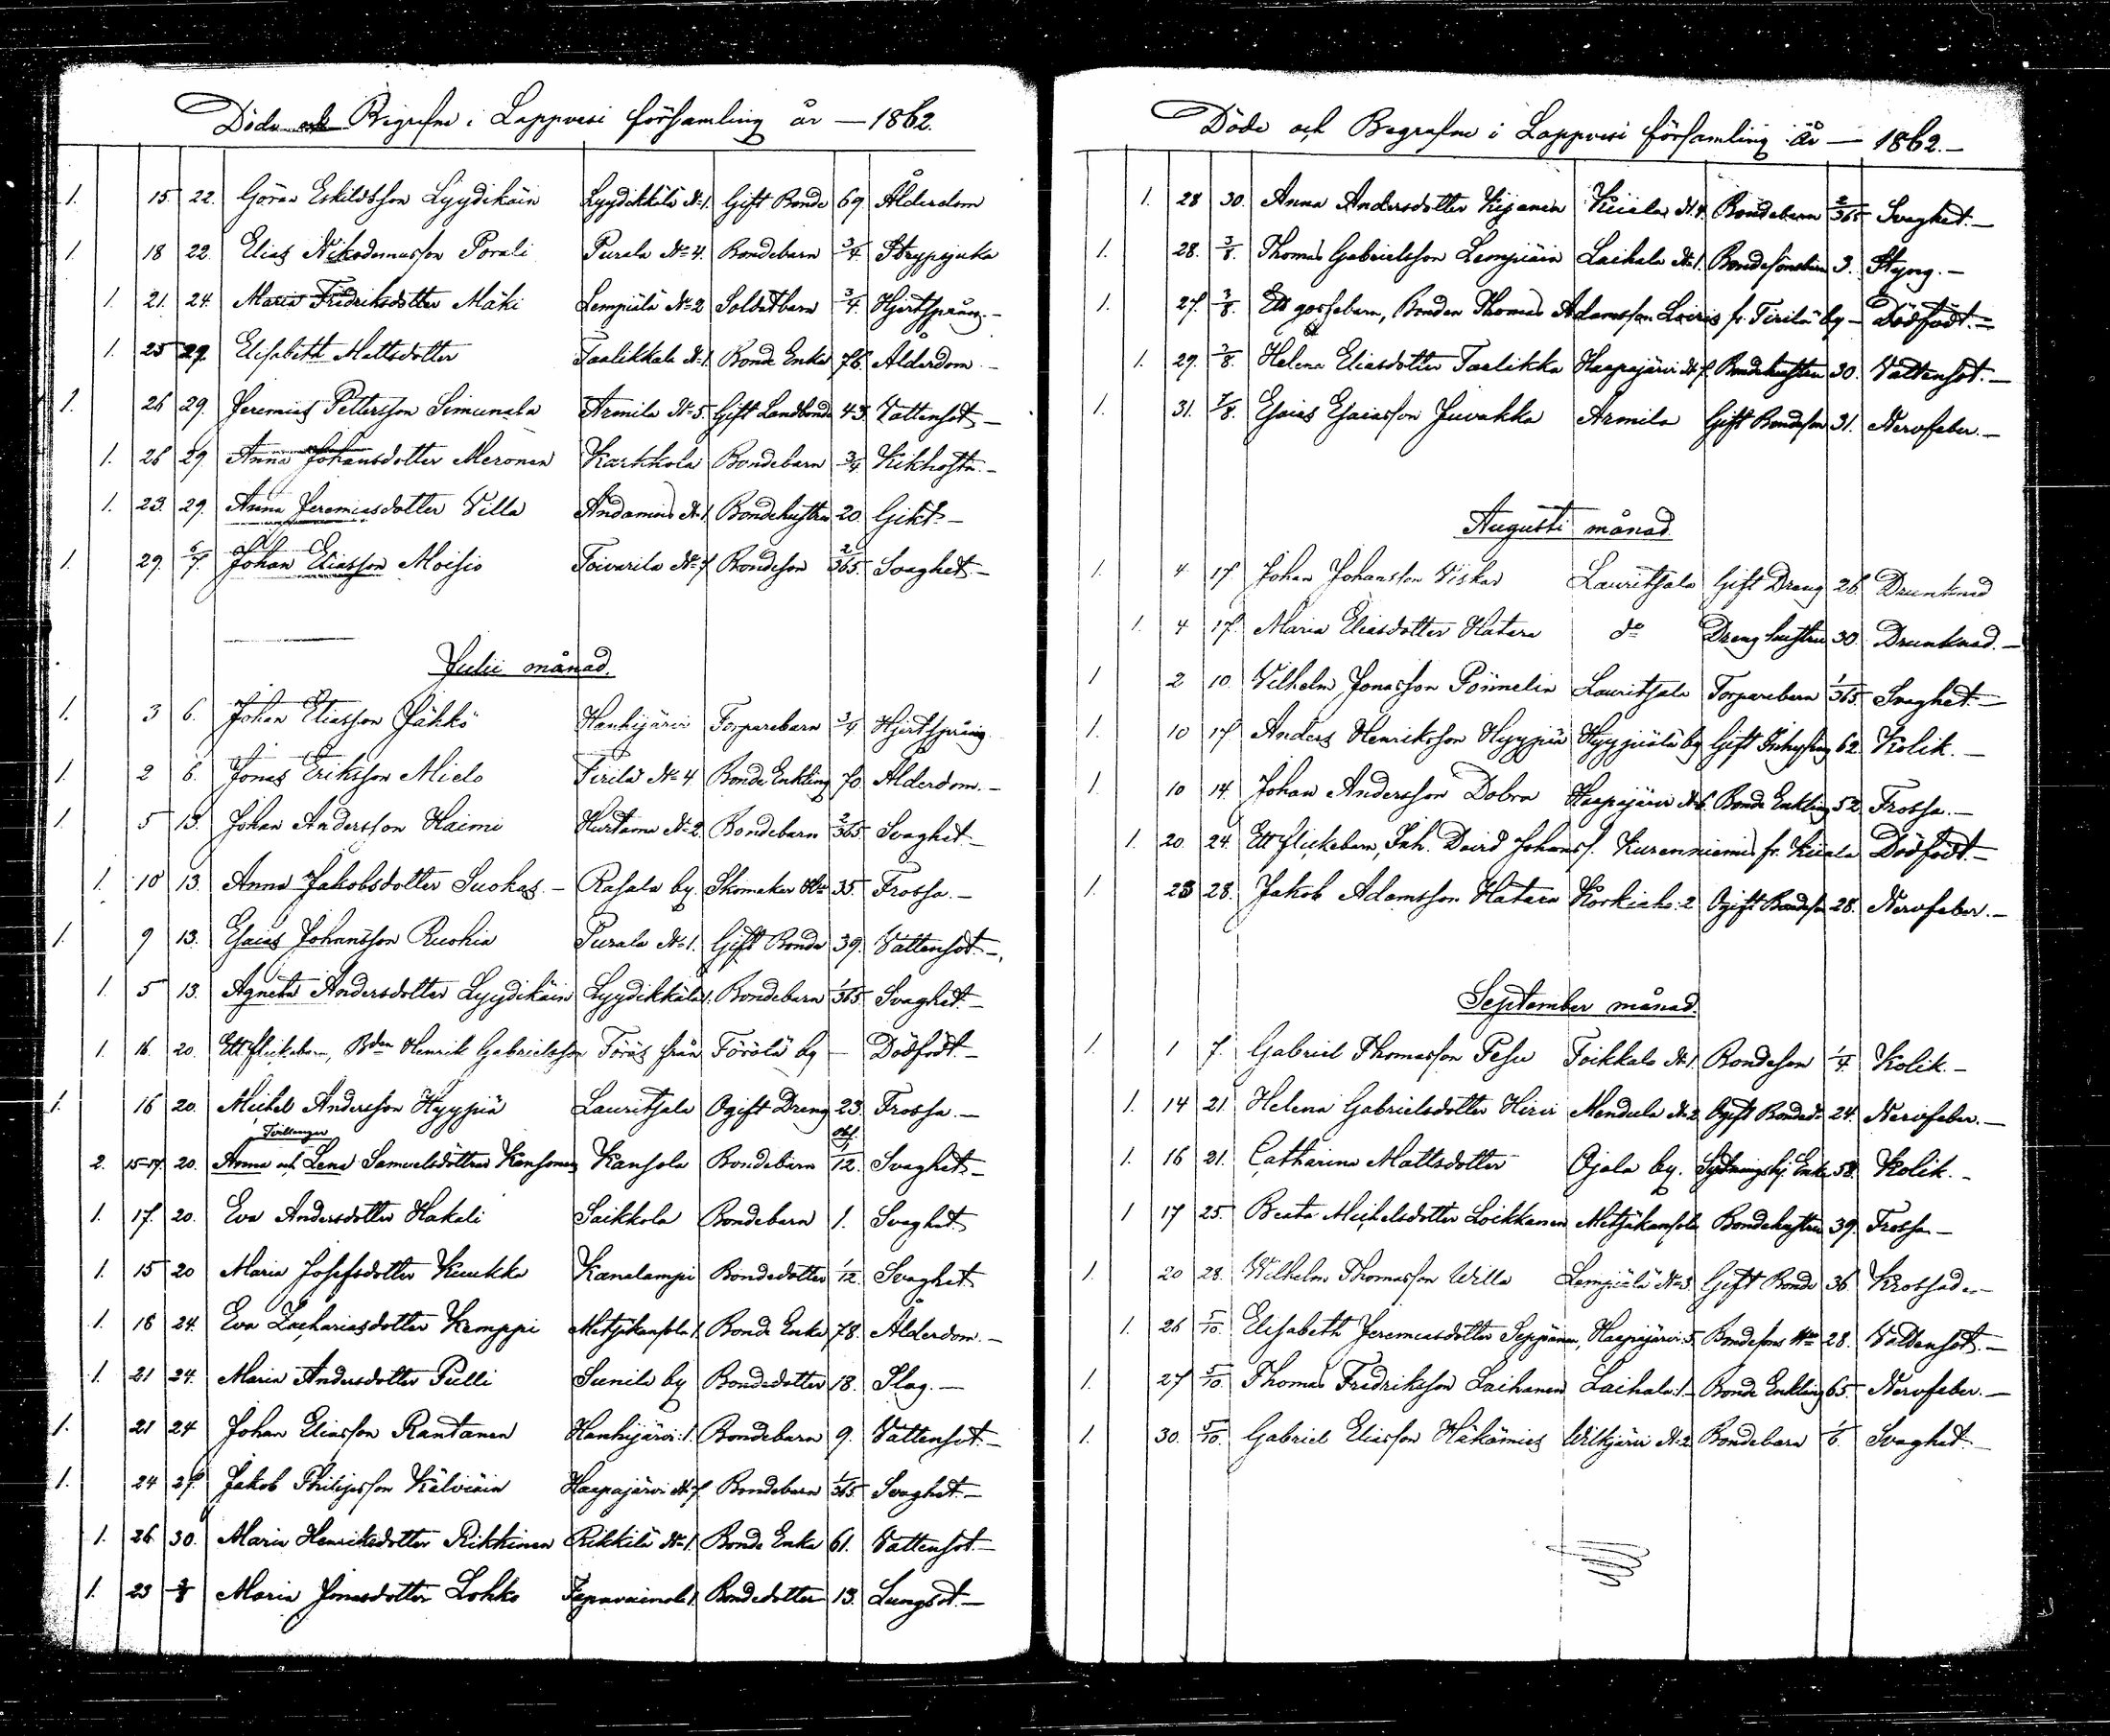 Döde och Begrafne i Lappvesi församling år — 1862.
1. 15. 22. Göran Eskildsson Lyydikäin Lyydikkälä No 1. Gift Bonde 69. Ålderdom
1. 18 22. Elias Nikodemusson Porali Purala No 4. Bondebarn 3/4. Strypsjuka
1. 21. 24. Maria Fredriksdotter Mäki Lempiälä No 2 Soldatbarn 3/4. Hjertsprång.-
1. 25 29. Elisabeth Mattsdotter Taalikkala No 1. Bonde Enka 76. Ålderdom.-
1. 26 29. Jeremias Pettersson Simunala Armila No 5. Gift Landbonde 43. Vattensot.-
1. 26 29 Anna Johansdotter Meronen Karkkola Bondebarn 3/4. Kikhosta.-
1. 23. 29. Anna Jeremiasdotter Villa No 1. Bondehustru 20. Gikt.-
1. 29. 6/7. Johan Eliasson Moisio Toivarila No 7 Bondeson 2/365. Svaghet.-
Julii månad.
1. 3 6. Johan Eliasson Jäkkö Hanhijärvi Torparebarn 3/4 Hjertsprång
1. 2 6. Jonas Eriksson Mielo Tirilä No 4 Bonde Enkling 70. Ålderdom.-
1. 5 13. Johan Andersson Haimi Hurtama No 2. Bondebarn 2/365. Svaghet.-
1. 10 13. Anna Jakobsdotter Suokas.- Rasala by. Skomakar Hu 35. Frossa.-
1. 9 13. Esaias Johansson Ruohia Purala No 1. Gift Bonde 39. Vattensot.-
1. 5 13. Agneta Andersdotter Lyydikäin Lyydikkälä 1. Bondebarn 1/365. Svaghet.-
1. 16. 20. Ett flickebarn, Bden Henrik Gabrielsson Töräs från Törölä by - Dödfödt.-
1. 16 20. Michel Andersson Hyypiä Lauritsala Ogift Dreng 23. Frossa.-
Tvillingar
2. 15-17. 20. Anna och Lena Samuelsdöttrar Kansonen Kansola Bondebarn 1/12. Svaghet.-
1. 17. 20. Eva Andersdotter Hakali Saikkola Bondebarn 1. Svaghet.
1. 15 20 Maria Josefsdotter Kuukka Kanalampi Bondedotter 1/12. Svaghet.
1. 16 24. Eva Zachariasdotter Kemppi Metsäkansola 1. Bonde Enka 78. Ålderdom.-
1. 21 24. Maria Andersdotter Pulli Sunila by Bondedotter 18. Slag.-
1. 21 24 Johan Eliasson Rantanen Hanhijärvi: 1. Bondebarn 9. Vattensot.-
1. 24 27. Jakob Philipsson Kälviäin Haapajärvi No 7 Bondebarn 1/365 Svaghet.-
1. 26 30. Maria Henriksdotter Rikkinen Rikkilä No 1. Bonde Enka 61. Vattensot.-
1. 23 3/8 Maria Jonasdotter Lohko Tapavainola 1. Bondedotter 13. Lungsot.-
Döde och Begrafne i Lappvesi församling år — 1862.-
1. 28 30. Anna Andersdotter Kijanen Kiiala No 4. Bondebarn 2/365 Svaghet.-
1. 28. 3/8. Thomas Gabrielsson Lempiäin Laihala No 1. Bondesonsbarn 3. Styng.-
1. 27. 3/8. Ett gossebarn, Bonden Thomas Adamsson Loiris fr. Tirilä by - Dödfödt.-
1. 29. 3/8. Helena Eliasdotter Taalikka Haapajärvi No 7. Bondehustru 30. Vattensot.-
1. 31. 7/8. Esaias Esaiasson Juvakka Armila Gift Bondeson 31. Nervfeber.-
Augusti månad.
1. 4 17 Johan Johansson Viskar Lauritsala Gift Dreng 26. Drunknad
1. 4 17. Maria Eliasdotter Hatara do Dreng hustru 30. Drunknad.-
1 2 10. Vilhelm Jonasson Pönnelin Lauritsala Torparebarn 1/365. Svaghet.-
1. 10 17 Anders Henriksson Hyypiä Hyypiälä by Gift Inhysing 62. Kolik.-
1. 10 14. Johan Andersson Dobra Haapajärvi No 6. Bonde Enkling 52. Frossa.-
1. 20 24. Ett flickebarn, Inh. David Johanss. Kurenniemis fr. Kiiala Dödfödt.-
1. 23 28. Jakob Adamsson Hatara Korkiaho: 2 Ogift Bondeson 28. Nervfeber.-
September månad.
1. 1 7. Gabriel Thomasson Pesu Toikkala No 1. Bondeson 1/4. Kolik.-
1. 14 21. Helena Gabrielsdotter Hirvi Mendula No 2. Ogift Bonded. 24. Nervfeber.-
1. 16 21. Catharina Mattsdotter Ojala by. Enka 58. Kolik.-
1 17 25. Beata Michelsdotter Loikkanen Metsäkansola Bondehustru 39. Frossa.-
1. 20 28. Wilhelm Thomasson Willa Lempiälä No 3. Gift Bonde 36. Krossad.-
1. 26 5/10. Elisabeth Jeremiasdotter Seppänen, Haapajärvi: 5. Bondesons Hu 28. Vattensot.-
1. 27 5/10. Thomas Fredriksson Laihanen Laihala: 1.- Bonde Enkling 65. Nervfeber.-
1. 30. 5/10. Gabriel Eliasson Häkämies Wilkjärvi No 2 Bondebarn 1/6. Svaghet.-